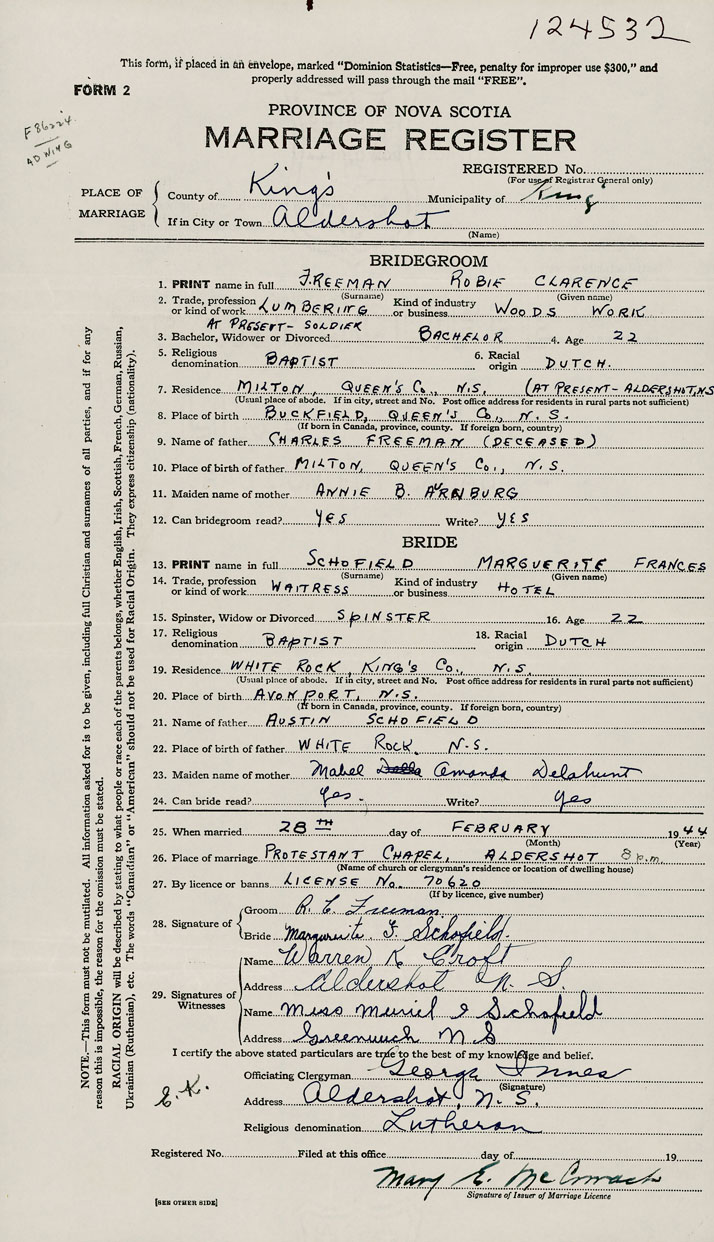 124532
This form, if placed in an envelope, marked "Dominion Statistics—Free, penalty for improper use $300," and
properly addressed will pass through the mail "FREE".
FORM 2
F86224
PROVINCE OF NOVA SCOTIA
MARRIAGE REGISTER
REGISTERED No.
(For use of Registrar General only)
PLACE OF MARRIAGE
County of King's Municipality of King
If in City or Town Aldershot
(Name)
BRIDEGROOM
1. PRINT name in full FREEMAN ROBIE CLARENCE
(Surname) (Given name)
2. Trade, profession or kind of work LUMBERING Kind of industry or business WOODS WORK
AT PRESENT - SOLDIER
3. Bachelor, Widower or Divorced BACHELOR 4. Age 22
5. Religious denomination BAPTIST 6. Racial origin DUTCH.
7. Residence MILTON, QUEEN'S Co., N.S. (AT PRESENT - ALDERSHOT, NS
(Usual place of abode. If in city, street and No. Post office address for residents in rural parts not sufficient)
8. Place of birth BUCKFIELD, QUEEN'S Co., N.S.
(If born in Canada, province, county. If foreign born, country)
9. Name of father CHARLES FREEMAN (DECEASED)
10. Place of birth of father MILTON, QUEEN'S Co., N.S.
11. Maiden name of mother ANNIE B.
12. Can bridegroom read? YES Write? YES
BRIDE
13. PRINT name in full SCHOFIELD MARGUERITE FRANCES
(Surname) (Given name)
14. Trade, profession or kind of work WAITRESS Kind of industry or business HOTEL
15. Spinster, Widow or Divorced SPINSTER 16. Age 22
17. Religious denomination BAPTIST 18. Racial origin DUTCH
19. Residence WHITE ROCK, KING'S Co., N.S.
(Usual place of abode. If in city, street and No. Post office address for residents in rural parts not sufficient)
20. Place of birth AVONPORT, N.S.
(If born in Canada, province, county. If foreign born, country)
21. Name of father AUSTIN SCHOFIELD
22. Place of birth of father WHITE ROCK N.S.
23. Maiden name of mother Mabel Amanda Delahunt
24. Can bride read? Yes. Write? Yes
25. When married 28TH day of FEBRUARY 1944
(Month) (Year)
26. Place of marriage PROTESTANT CHAPEL, ALDERSHOT 8 p.m.
(Name of church or clergyman's residence or location of dwelling house)
27. By licence or banns LICENSE No. 70620
(If by licence, give number)
28. Signature of
Groom R. C. Freeman
Bride Marguerite F. Schofield.
29. Signatures of Witnesses
Name Warren K Croft
Address Aldershot N.S.
Name Miss Muriel E Schofield
Address Greenwich N S
I certify the above stated particulars are true to the best of my knowledge and belief.
Officiating Clergyman George Innes
(Signature)
E.K.
Address Aldershot, N.S.
Religious denomination Lutheran
Registered No. Filed at this office day of 19
Mary E. McCormack
Signature of Issuer of Marriage Licence
[SEE OTHER SIDE]
NOTE.—This form must not be mutilated. All information asked for is to be given, including full Christian and surnames of all parties, and if for any
reason this is impossible, the reason for the omission must be stated.
RACIAL ORIGIN will be described by stating to what people or race each of the parents belongs, whether English, Irish, Scottish, French, German, Russian,
Ukrainian (Ruthenian), etc. The words "Canadian" or "American" should not be used for Racial Origin. They express citizenship (nationality).